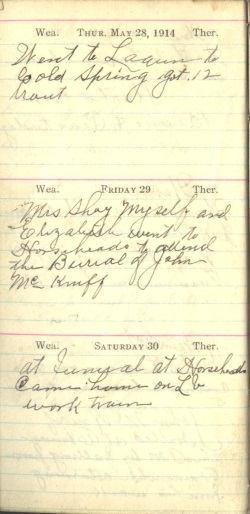 Wea. THUR. MAY 28, 1914 Ther.
Went to Lagun to
Cold Spring got. 12
trout
Wea. FRIDAY 29 Ther.
Mrs Shay Myself and
Elizabeth went to
Horseheads to attend
the Burial of John
Mc Kniff
Wea. SATURDAY 30 Ther.
at funeral at Horseheads
Came home on L V
work train